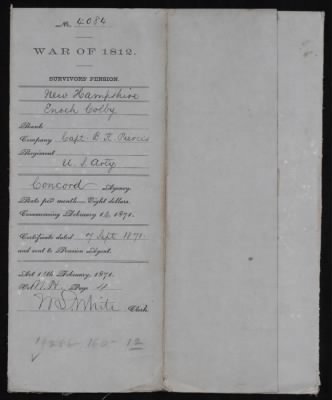 No. 4084
WAR OF 1812.
SURVIVORS' PENSION.
New Hampshire
Enoch Colby
Rank
Company Capt. B. K. Pierce's
Regiment
U. S. Arty
Concord Agency.
Rate per month, Eight dollars.
Commencing February 14, 1871.
Certificate dated 7 Sept 1871.
and sent to Pension Agent.
Act 14th February, 1871.
Vol. N.H. Page 4
Clerk.